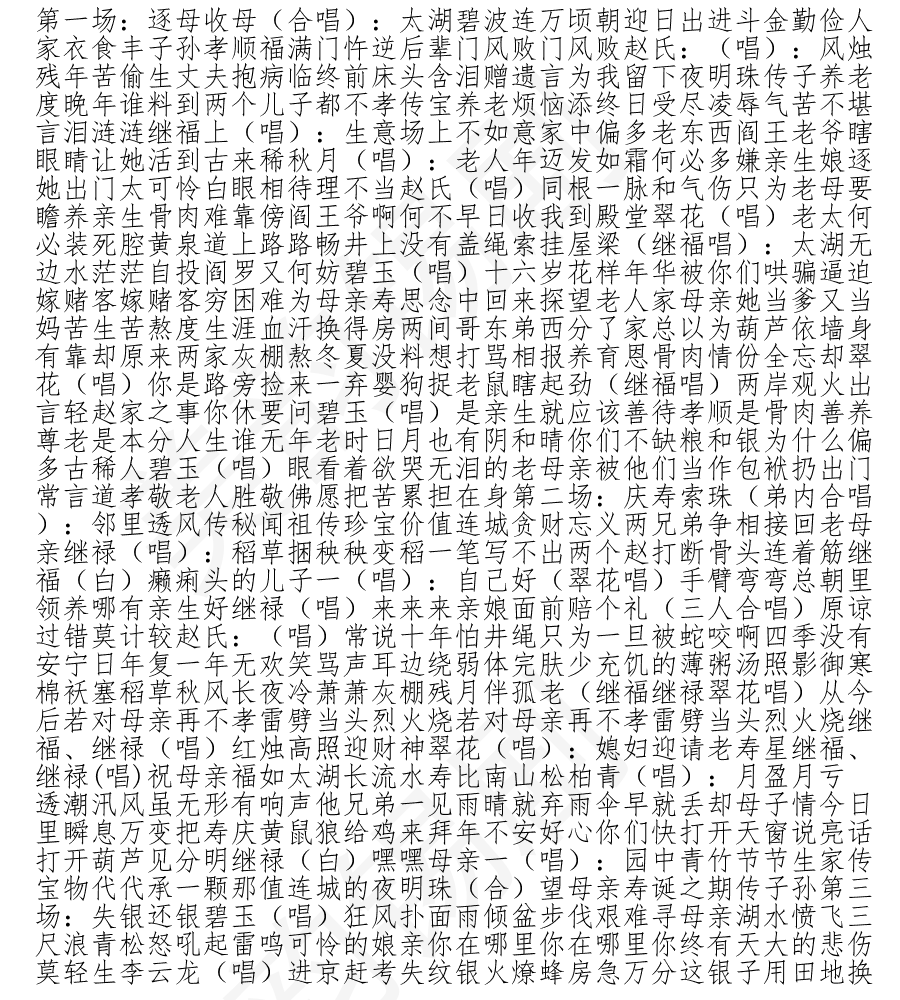 第一场：逐母收母（合唱）：太湖碧波连万顷朝迎日出进斗金勤俭人
家衣食丰子孙孝顺福满门忤逆后辈门风败门风败赵氏：（唱）：风烛
残年苦偷生丈夫抱病临终前床头含泪赠遗言为我留下夜明珠传子养老
度晚年谁料到两个儿子都不孝传宝养老烦恼添终日受尽凌辱气苦不堪
言泪涟涟继福上（唱）：生意场上不如意家中偏多老东西阎王老爷瞎
眼睛让她活到古来稀秋月（唱）：老人年迈发如霜何必多嫌亲生娘逐
她出门太可怜白眼相待理不当赵氏（唱）同根一脉和气伤只为老母要
瞻养亲生骨肉难靠傍阎王爷啊何不早日收我到殿堂翠花（唱）老太何
必装死腔黄泉道上路路畅井上没有盖绳索挂屋梁（继福唱）：太湖无
边水茫茫自投阎罗又何妨碧玉（唱）十六岁花样年华被你们哄骗逼迫
嫁赌客嫁赌客穷困难为母亲寿思念中回来探望老人家母亲她当爹又当
妈苦生苦熬度生涯血汗换得房两间哥东弟西分了家总以为葫芦依墙身
有靠却原来两家灰棚熬冬夏没料想打骂相报养育恩骨肉情份全忘却翠
花（唱）你是路旁捡来一弃婴狗捉老鼠瞎起劲（继福唱）两岸观火出
言轻赵家之事你休要问碧玉（唱）是亲生就应该善待孝顺是骨肉善养
尊老是本分人生谁无年老时日月也有阴和晴你们不缺粮和银为什么偏
多古稀人碧玉（唱）眼看着欲哭无泪的老母亲被他们当作包袱扔出门
常言道孝敬老人胜敬佛愿把苦累担在身第二场：庆寿索珠（弟内合唱
）：邻里透风传秘闻祖传珍宝价值连城贪财忘义两兄弟争相接回老母
亲继禄（唱）：稻草捆秧秧变稻一笔写不出两个赵打断骨头连着筋继
福（白）癞痢头的儿子一（唱）：自己好（翠花唱）手臂弯弯总朝里
领养哪有亲生好继禄（唱）来来来亲娘面前赔个礼（三人合唱）原谅
过错莫计较赵氏：（唱）常说十年怕井绳只为一旦被蛇咬啊四季没有
安宁日年复一年无欢笑骂声耳边绕弱体完肤少充饥的薄粥汤照影御寒
棉袄塞稻草秋风长夜冷萧萧灰棚残月伴孤老（继福继禄翠花唱）从今
后若对母亲再不孝雷劈当头烈火烧若对母亲再不孝雷劈当头烈火烧继
福、继禄（唱）红烛高照迎财神翠花（唱）：媳妇迎请老寿星继福、
继禄(唱)祝母亲福如太湖长流水寿比南山松柏青（唱）：月盈月亏
透潮汛风虽无形有响声他兄弟一见雨晴就弃雨伞早就丢却母子情今日
里瞬息万变把寿庆黄鼠狼给鸡来拜年不安好心你们快打开天窗说亮话
打开葫芦见分明继禄（白）嘿嘿母亲一（唱）：园中青竹节节生家传
宝物代代承一颗那值连城的夜明珠（合）望母亲寿诞之期传子孙第三
场：失银还银碧玉（唱）狂风扑面雨倾盆步伐艰难寻母亲湖水愤飞三
尺浪青松怒吼起雷鸣可怜的娘亲你在哪里你在哪里你终有天大的悲伤
莫轻生李云龙（唱）进京赶考失纹银火燎蜂房急万分这银子用田地换